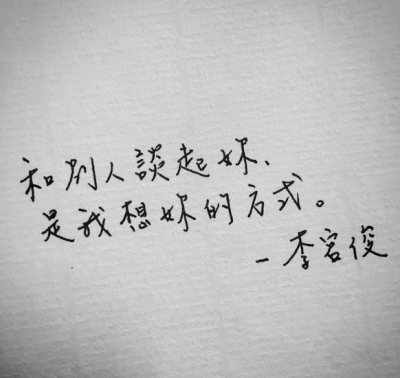 和別人談起妳、
是我想妳的方式。
-李容俊